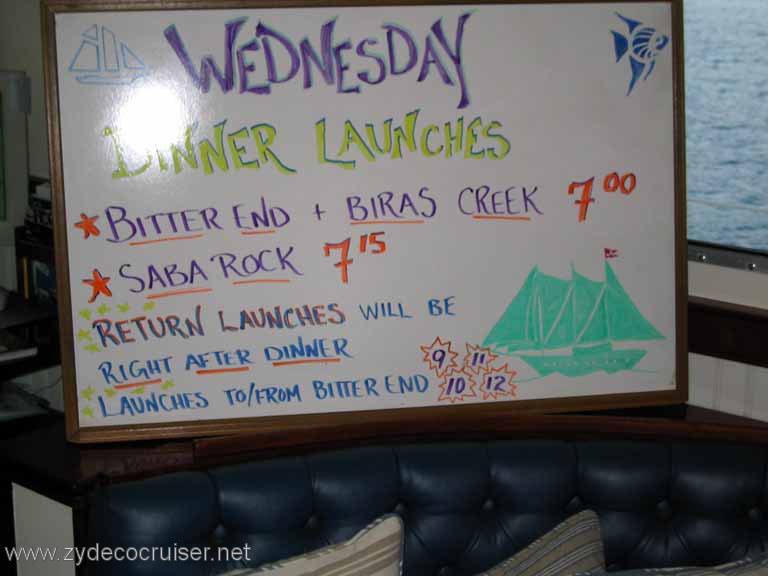 WEDNESDAY
DINNER LAUNCHES
* BITTER END + BIRAS CREEK 7 00
* SABA ROCK 7 15
RETURN LAUNCHES WILL BE
RIGHT AFTER DINNER 9 11
LAUNCHES TO/FROM BITTER END 10 12
www.zydecocruiser.net